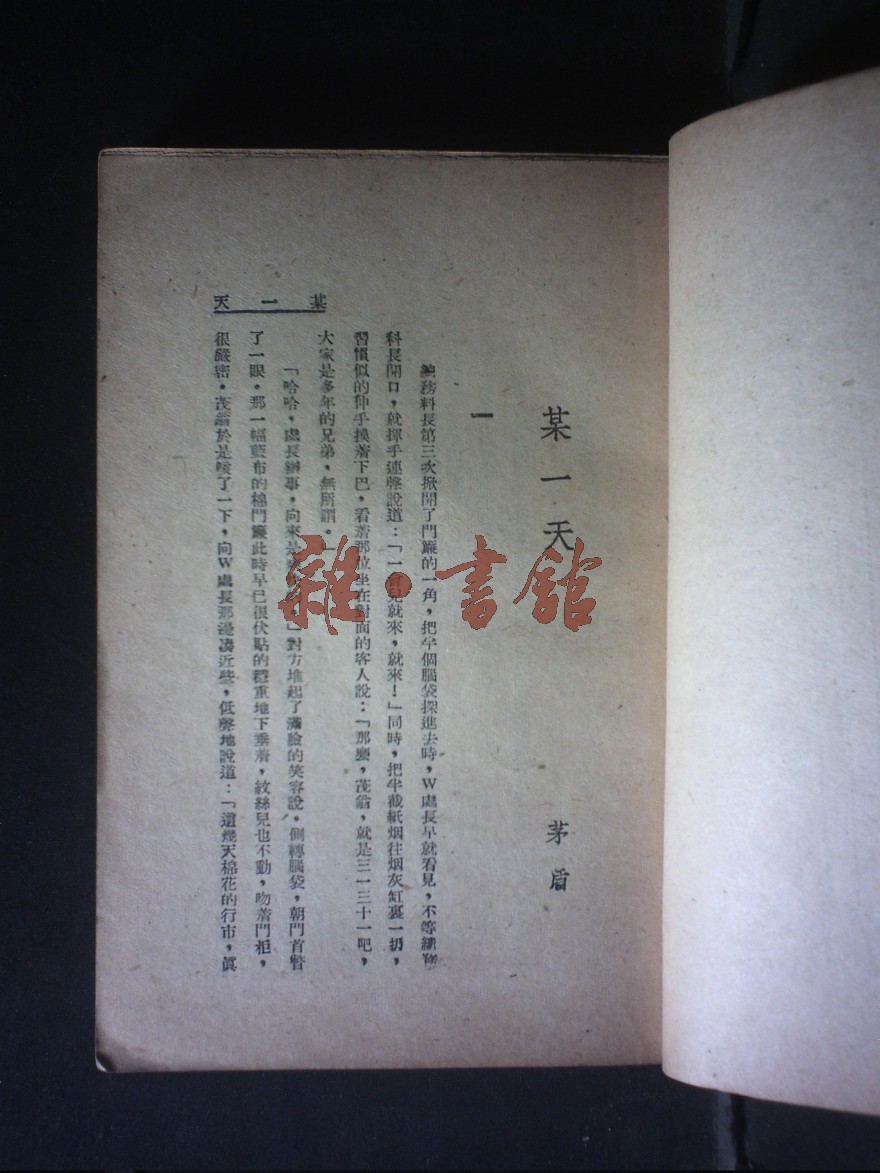 某一天
茅盾
一
總務科長第三次掀開了門簾的一角，把半個腦袋探進去時，W處長早就看見，不等總務
科長開口，就揮手連聲說道：「一會兒就來，就來！」同時，把半截紙烟往烟灰缸裏一扔，
習慣似的伸手摸着下巴，看着那位坐在對面的客人說：「那麼，茂翁，就是三一三十一吧，
大家是多年的兄弟，無所謂。」
「哈哈，處長辦事，向來是」對方堆起了滿臉的笑容說。側轉腦袋，朝門首瞥
了一眼。那一幅藍布的棉門簾此時早已很伏貼的穩重地下垂着，紋絲兒也不動，吻着門柜，
很嚴密。茂翁於是咳了一下，向W處長那邊湊近些，低聲地說道：「這幾天棉花的行市，眞
某一天
雜·書館